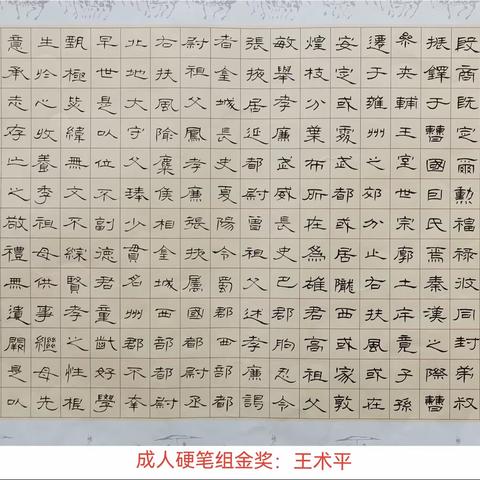 殷商既定爾勳福祿攸同封弟叔
振鐸于曹國因氏焉秦漢之際曹
參夾輔王室世宗廓土斥竟子孫
遷于雍州之郊分止右扶風或在
安定或處武都或居隴西或家敦
煌枝分葉布所在為雄君高祖父
敏舉孝廉武威長史巴郡朐忍令
張掖居延都尉曾祖父述孝廉謁
者金城長史夏陽令蜀郡西部都
尉祖父鳳孝廉張掖屬國都尉丞
右扶風隃麋侯相金城西部都尉
北地大守父琫少貫名州郡不幸
早世是以位不副德君童齔好學
甄極毖緯無文不綜賢孝之性根
生於心收養季祖母供事繼母先
意承志存亡之敬禮無遺闕是以
成人硬笔组金奖:王术平